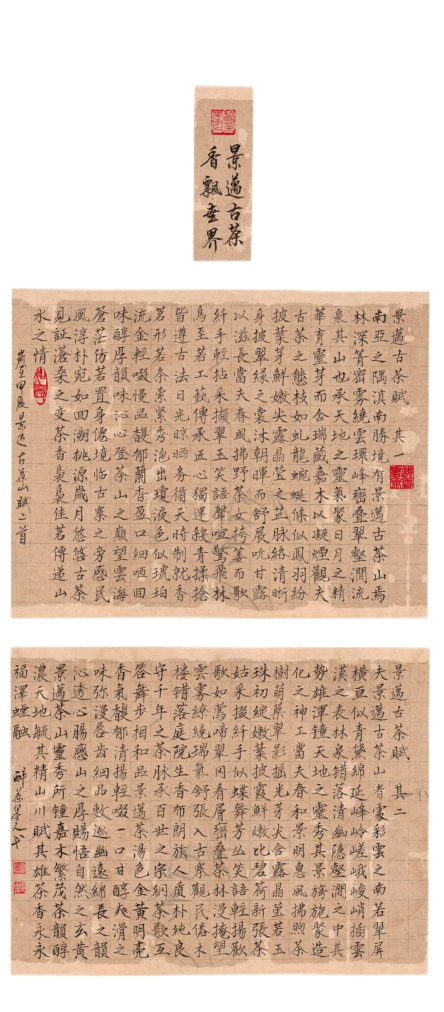 景邁古茶
香飄世界
景邁古茶賦 其一
南亞之隅滇南勝境有景邁古茶山焉
林深菁密霧繞雲環峰巒疊翠壑澗流
泉其山也承天地之靈氣聚日月之精
華育靈芽而含瑞藏嘉木以凝煙觀夫
古茶之態枝如虬龍蜿蜒條似鳳羽紛
披葉芽鮮嫩尖露晶瑩之芒脈絡清晰
身披翠綠之裳沐朝暉而舒展吮甘露
以滋長當夫春風拂野茶女挎簍而歌
纤手輕拈采擷翠玉笑語聲喧驚飛林
鳥至若工藝傳承匠心獨運殺青揉捻
皆遵古法日光晾晒务循天時制就香
茗形若条索紧秀泡出瓊液色似琥珀
流金輕啜慢品馥郁蘭香盈口細咂回
味醇厚韻味沁心登茶山之巔望雲海
蒼茫仿若置身僊境临古寨之旁感民
風淳朴宛如回溯桃源歲月悠悠古茶
見証滄桑之变茶香裊裊佳茗傳遞山
水之情
歲在甲辰景邁古茶山賦二首
景邁古茶賦 其二
夫景邁古茶山者處彩雲之南若翠屏
橫亘似青黛綿延峰岭嵯峨峻峭插雲
漢之表林泉錯落清幽隱壑澗之中其
勢雄渾鍾天地之靈秀其景旖旎聚造
化之神工當夫春和景明惠風拂煦茶
樹萌翠翠影搖光芽尖含露晶瑩若玉
珠初綻嫩葉披霞鮮嫩比碧荷新張茶
姑采掇纤手似蝶舞芳丛笑語輕揚歡
歌如鶯啼翠岡看層巒疊茶林漫掩望
雲霧繚繞瑞氣舒張入古寨觀民俗木
樓错落庭院生香布朗族人质朴純良
守千年之茶脉承百世之宗納茶歌互
答舞步相和品景邁茶湯色金黄明亮
香氣馥郁清揚輕啜一口甘醇爽滑之
味弥漫唇齿細品數巡幽遠綿長之韻
沁透心肠感山之厚賜悟自然之玄黄
景邁茶山靈秀所鐘嘉木繁茂茶韻醇
濃天地毓其精山川賦其雄茶香永永
福澤螎融